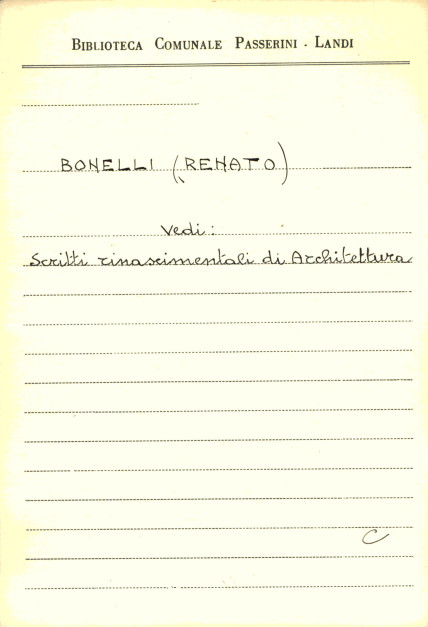 BIBLIOTECA COMUNALE PASSERINI - LANDI
BONELLI (RENATO)
Vedi:
Scritti rinascimentali di Architettura
C